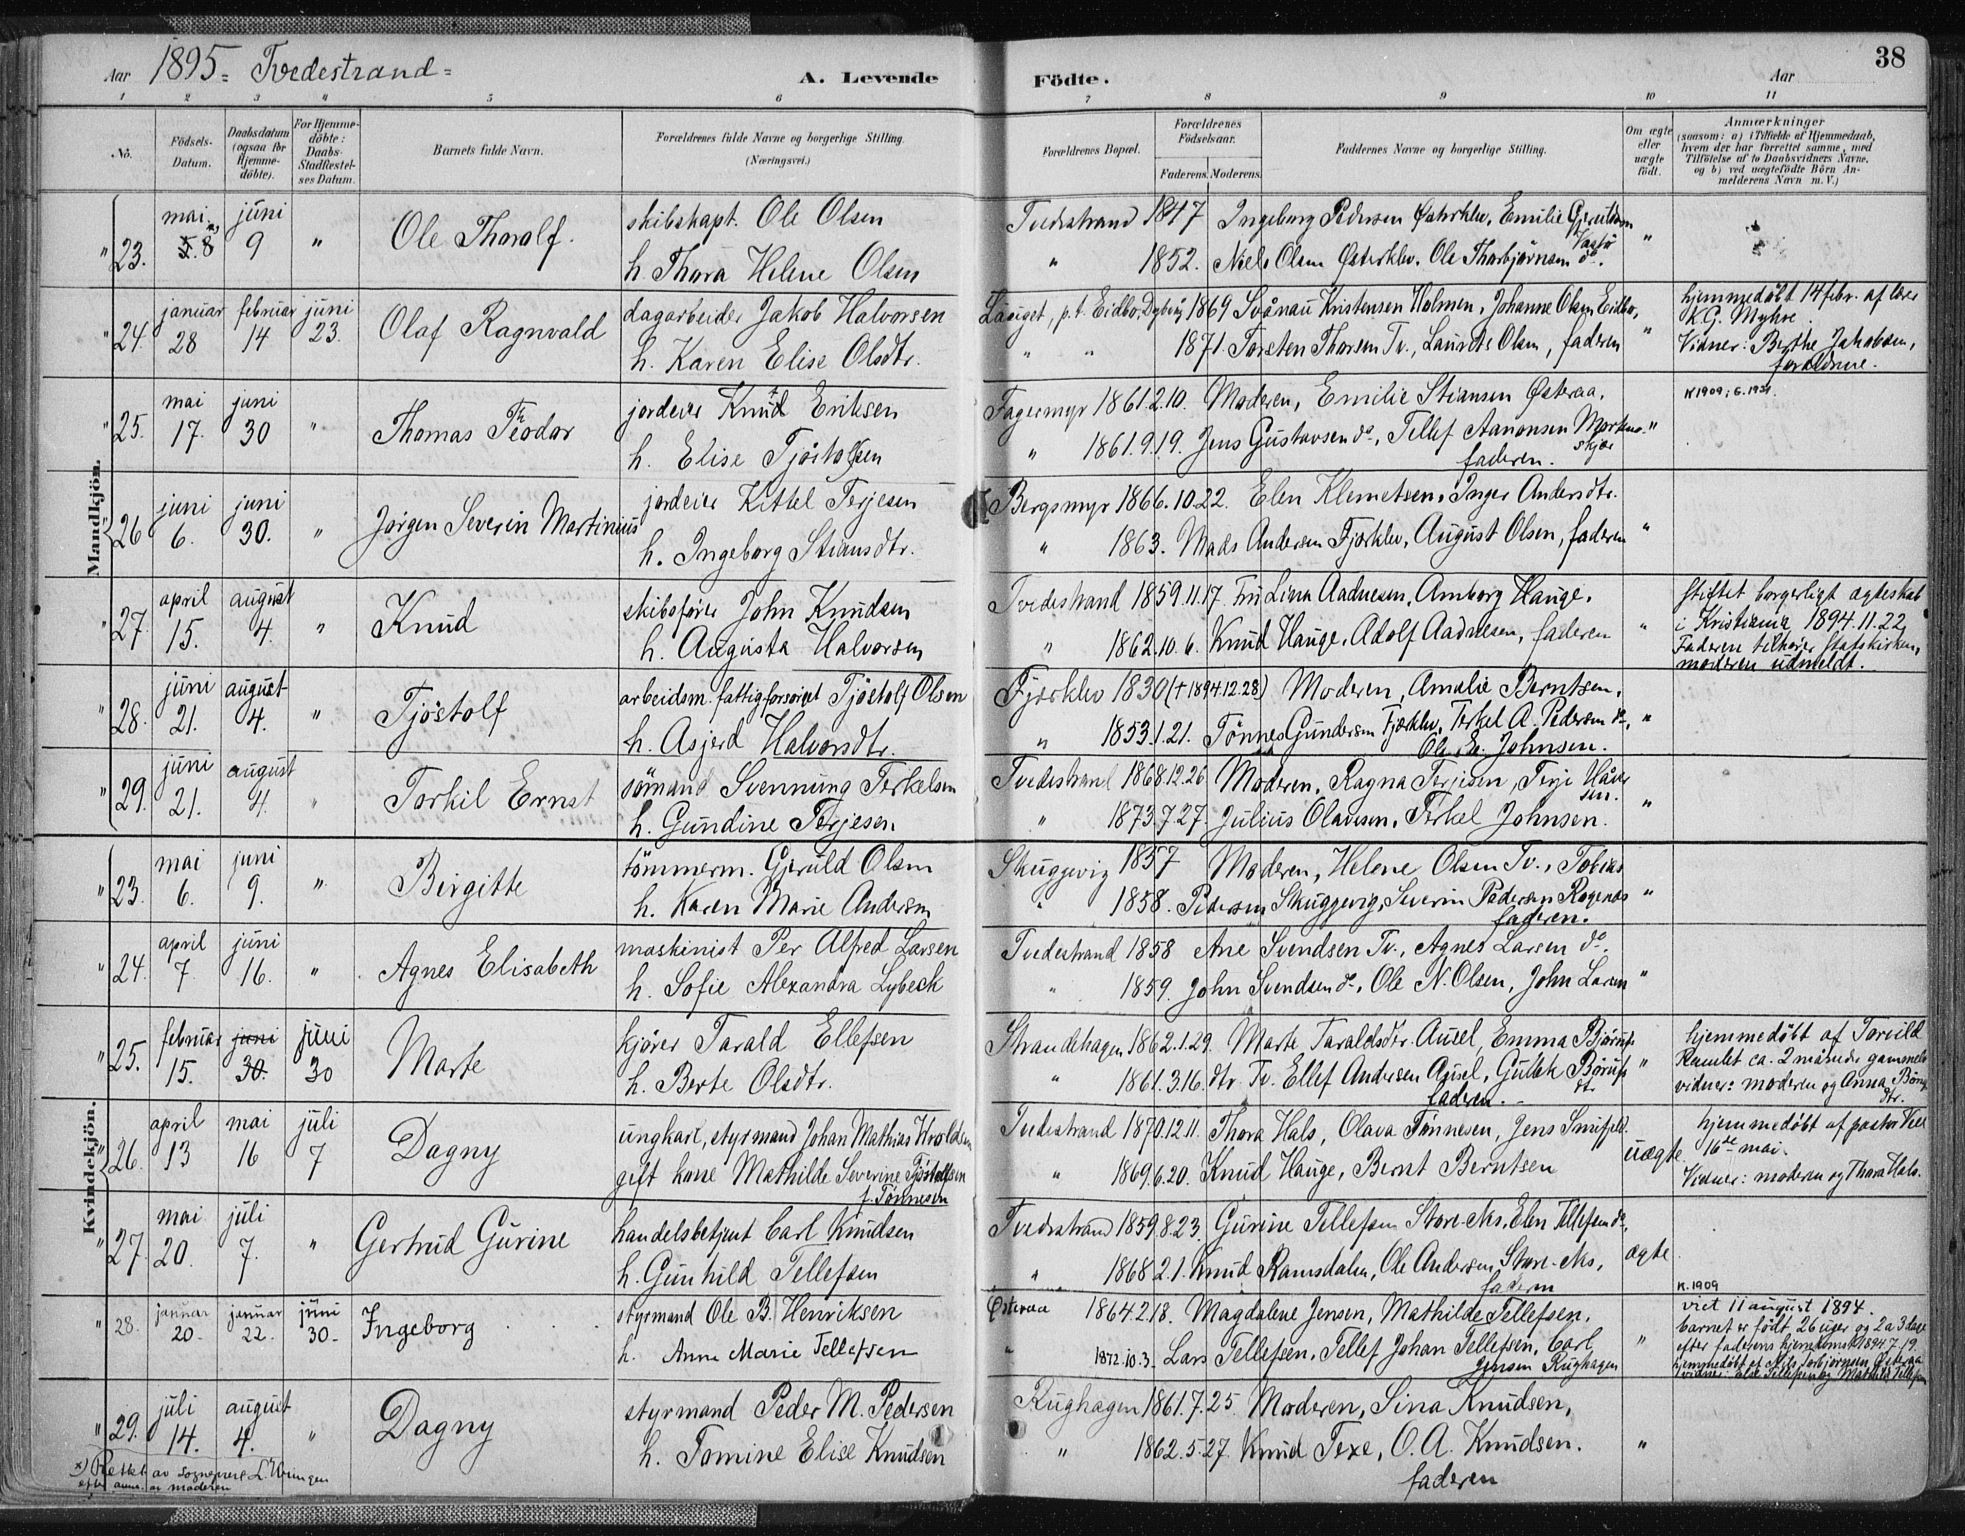 Aar 1895 = Tvedestrand =
A. Levende Födte.
Aar
38
1 2 3 4 5 6 7 8 9 10 11
No.
Födsels-Datum.
Daabsdatum (ogsaa for Hjemme-döbte).
For Hjemme-döbte: Daabs-Stadfæstel-ses Datum.
Barnets fulde Navn.
Forældrenes fulde Navne og borgerlige Stilling. (Næringsvei.)
Forældrenes Bopæl.
Forældrenes Födselsaar.
Faderens. Moderens.
Faddernes Navne og borgerlige Stilling.
Om ægte eller uægte födt.
Anmærkninger
(saasom: a) i Tilfælde af Hjemmedaab,
hvem der har forrettet samme, med
Tilföielse af to Daabsvidners Navne.
og b) ved uægtefödte Börn An-
melderens Navn m. V.)
Mandkjön.
" 23. mai 8 juni 9 " Ole Thoralf. skibskapt. Ole Olsen Tvedestrand 1847 Ingeborg Pedersen Østerklev, Emilie
h. Thora Helene Olsen " 1852. Niels Olsen Østerklev. Ole Thorbjørnsen do. "
" 24. januar 28 februar 14 juni 23. Olaf Ragnvald dagarbeider Jakob Halvorsen p.t. Eidbo, 1869 Kristensen Holmen, Johanne Olsen Eidbo, hjemmedøbt 14 febr. af lærer
K.G. Myhre.
h. Karen Elise Olsdtr. " " 1871. Torsten Thorsen Tv., Olsen, faderen " Vidner: Berthe Jakobsen,
forældrene.
" 25. mai 17. juni 30 " Thomas Teodor jordeier Knud Eriksen Fagermyr 1861.2.10. Moderen, Emilie Stiansen Østeraa. K 1909;
h. Elise Tjöstolfsen " 1861.9.19. Jens Gustavsen do., Tellef Aanonsen "
faderen.
" 26 juni 6. juni 30. " Jørgen Severin Martinius jordeier Kittel Terjesen Bergsmyr 1866.10.22. Elen Klemetsen, Inger Andersdtr.
h. Ingeborg Stiansdtr. " 1863. Mads Andersen Fjærklev, August Olsen, faderen "
" 27 april 15. august 4. " Knud skibsfører John Knudsen Tvedestrand 1859.11.17. Fru Lina Aadnesen, Amborg Hauge. Stiftet borgerligt ægteskab
i Kristiania 1894.11.22,
h. Augusta Halvorsen " 1862.10.6. Knud Hauge, Adolf Aadnesen, faderen " Faderen tilhører Statskirken,
moderen udmeldt.
" 28. juni 21. august 4. " Tjöstolf arbeidsm. fattigforsörget Tjöstolf Olsen Fjærklev 1830 (†1894.12.28) Moderen, Amalie Berntsen,
h. Asjerd Halvorsdtr. " 1853.1.21. Tönnes Gundersen Fjærklev, Terkel A. Pedersen do., "
Ole Johnsen.
" 29. juni 21. august 4. " Torkil Ernst sömand Svennung Terkelsen Tvedestrand 1868.12.26 Moderen, Ragna Terjesen,
h. Gundine Terjesen " 1873.7.27. Julius Olavesen, Terkel Johnsen. "
Kvindekjön.
" 23. mai 6. juni 9. " Birgitte tömmerm. Gjeruld Olsen Skuggevig 1857 Moderen, Helene Olsen Tv., Tobias
h. Karen Marie Andersen " 1858. Pedersen Skuggevig, Severin Pedersen "
faderen.
" 24. april 7 juni 16. " Agnes Elisabeth maskinist Per Alfred Larsen Tvedestrand 1858 Ane Svendsen Tv., Agnes Larsen do.
h. Sofie Alexandra Lybeck " 1859. John Svendsen do., Ole N. Olsen, John Larsen "
" 25. februar 15. juni 30. juni 30 Marte kjörer Tarald Ellefsen Strandehagen 1862.1.29. Marte Taraldsdtr. Ausel, Emma hjemmedøbt af
ca. 2 måneder gammel
h. Berte Olsdtr. " 1861.3.16. dtr. Tv. Ellef Andersen Ausel, " vidner: moderen og Anna
faderen.
" 26. april 13 mai 16 juli 7 Dagny ungkarl, styrmand Johan Mathias Tvedestrand 1870.12.11. Thora Hals, Olava Tønnesen, Jens hjemmedøbt af pastor
uægte. 16de mai.
gift kone Mathilde Severine Tjöstolfsen " 1869.6.20. Knud Hauge, Bernt Berntsen Vidner: moderen og Thora Hals.
f. Tønnesen
" 27. mai 20. juli 7. " Gertrud Gurine handelsbetjent Carl Knudsen Tvedestrand 1859.8.23. Gurine Tellefsen Store-Næs, Elen Tellefsen do.,
h. Gunhild Tellefsen " 1868.2.1. Knud Ramsdalen, Ole Andersen, Store-Næs, ægte.
faderen
" 28. januar 20. januar 22. juni 30. Ingeborg styrmand Ole B. Henriksen Østeraa 1864.2.18. Magdalene Jensen, Mathilde Tellefsen. K. 1909
viet 11 august 1894.
barnet er født 26 uger og 2 a 3 dage
h. Anne Marie Tellefsen " 1872.10.3. Lars Tellefsen, Tellef Johan Tellefsen, Carl " efter faderens hjemkomst 1894.7.19.
Jensen Rughagen hjemmedøbt af Nils Torbjørnsen Østeraa
vidner: Else Tellefsen og Mathilde Tellefsen
" 29. juli 14. august 4. " Dagny styrmand Peder M. Pedersen Rughagen 1861.7.25. Moderen, Sina Knudsen,
h. Tomine Elise Knudsen " 1862.5.27. Knud Texe, O. A. Knudsen. "
faderen
x) Rettet av sogneprest
efter anm. av moderen